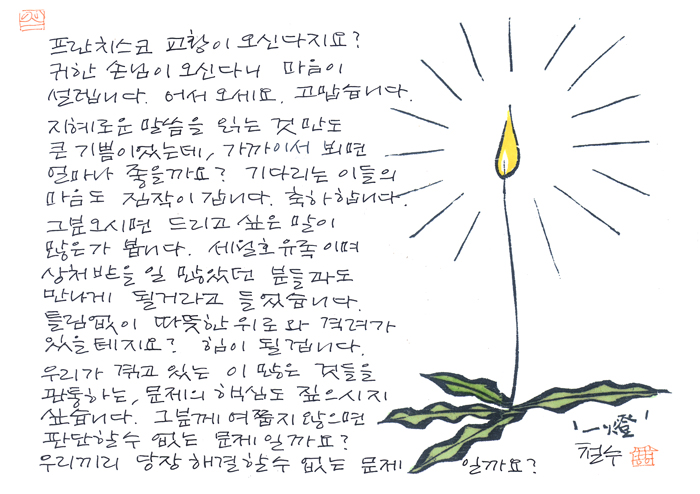 프란치스코 교황이 오신다지요?
귀한 손님이 오신다니 마음이
설렙니다. 어서 오세요. 고맙습니다.
지혜로운 말씀을 읽는 것만도
큰 기쁨이었는데, 가까이서 뵈면
얼마나 좋을까요? 기다리는 이들의
마음도 짐작이 갑니다. 축하합니다.
그분 오시면 드리고 싶은 말이
많은가 봅니다. 세월호 유족이며
상처받을 일 많았던 분들과도
만나게 될거라고 들었습니다.
틀림없이 따뜻한 위로와 격려가
있을테지요? 힘이 될겁니다.
우리가 겪고 있는 이 많은 것들을
관통하는, 문제의 핵심도 짚으시지
싶습니다. 그분께 여쭙지 않으면
판단할수 없는 문제일까요?
우리끼리 당장 해결할수 없는 문제 일까요?
'一燈'
철수